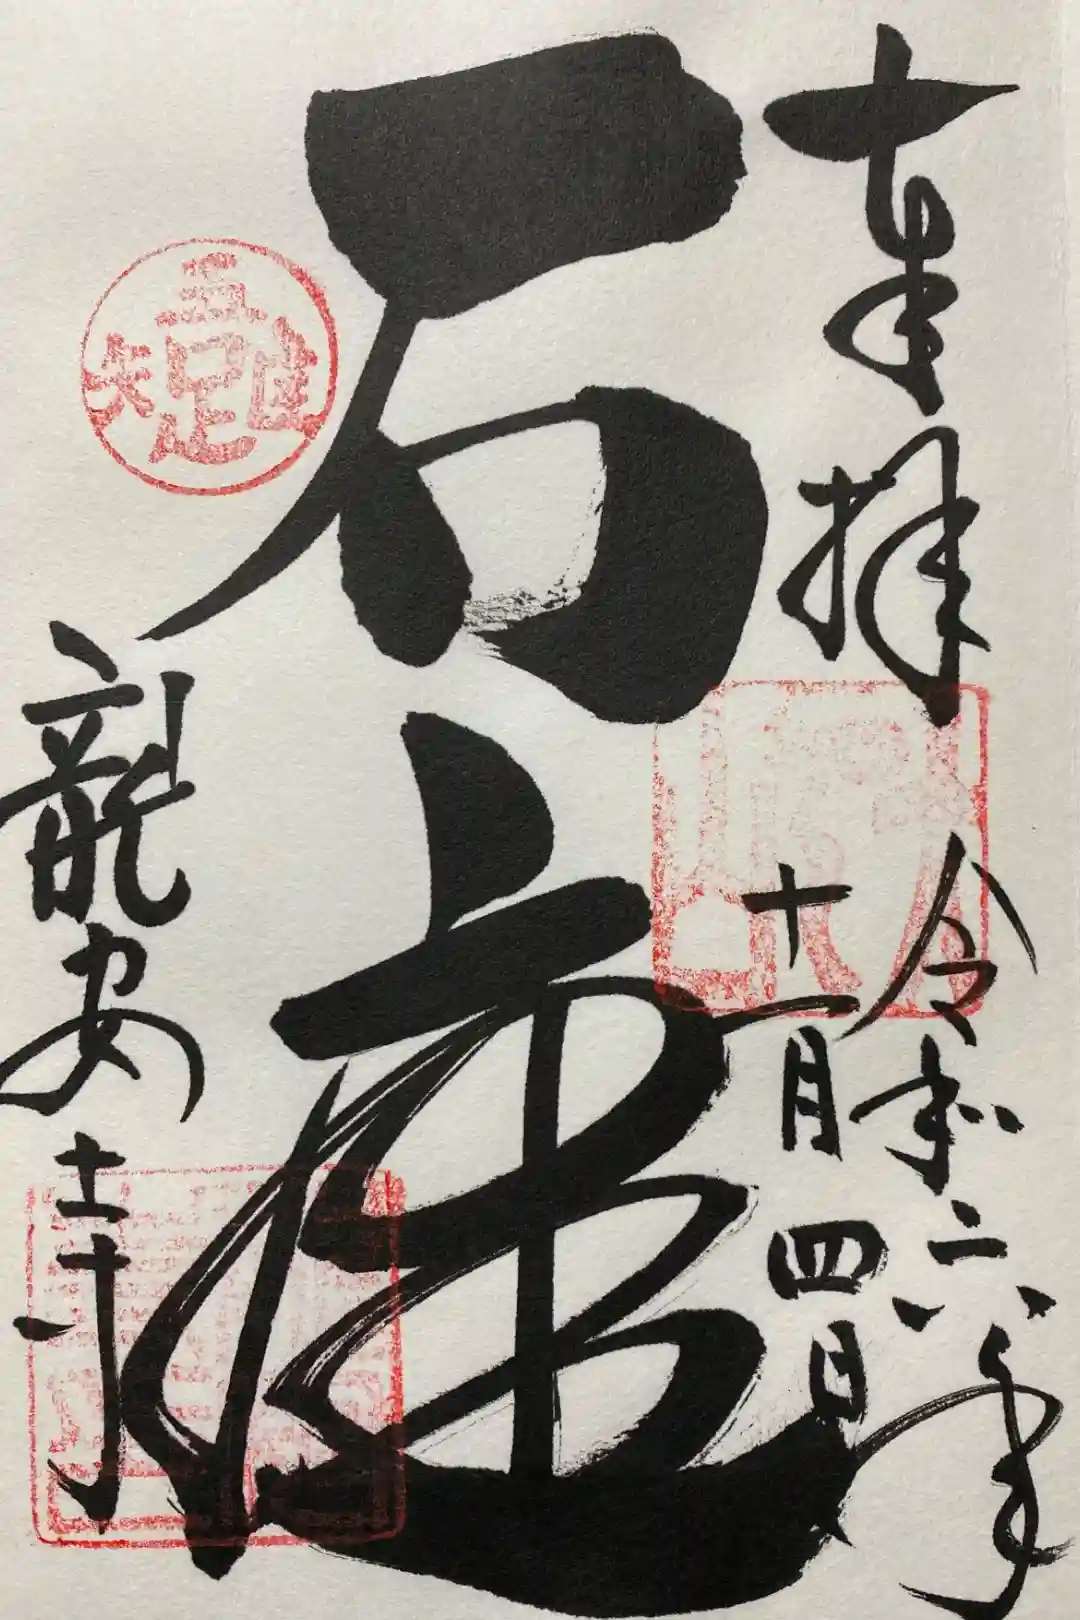 奉拝
令和六年
十一月四日
石庭
吾唯足知
龍安寺